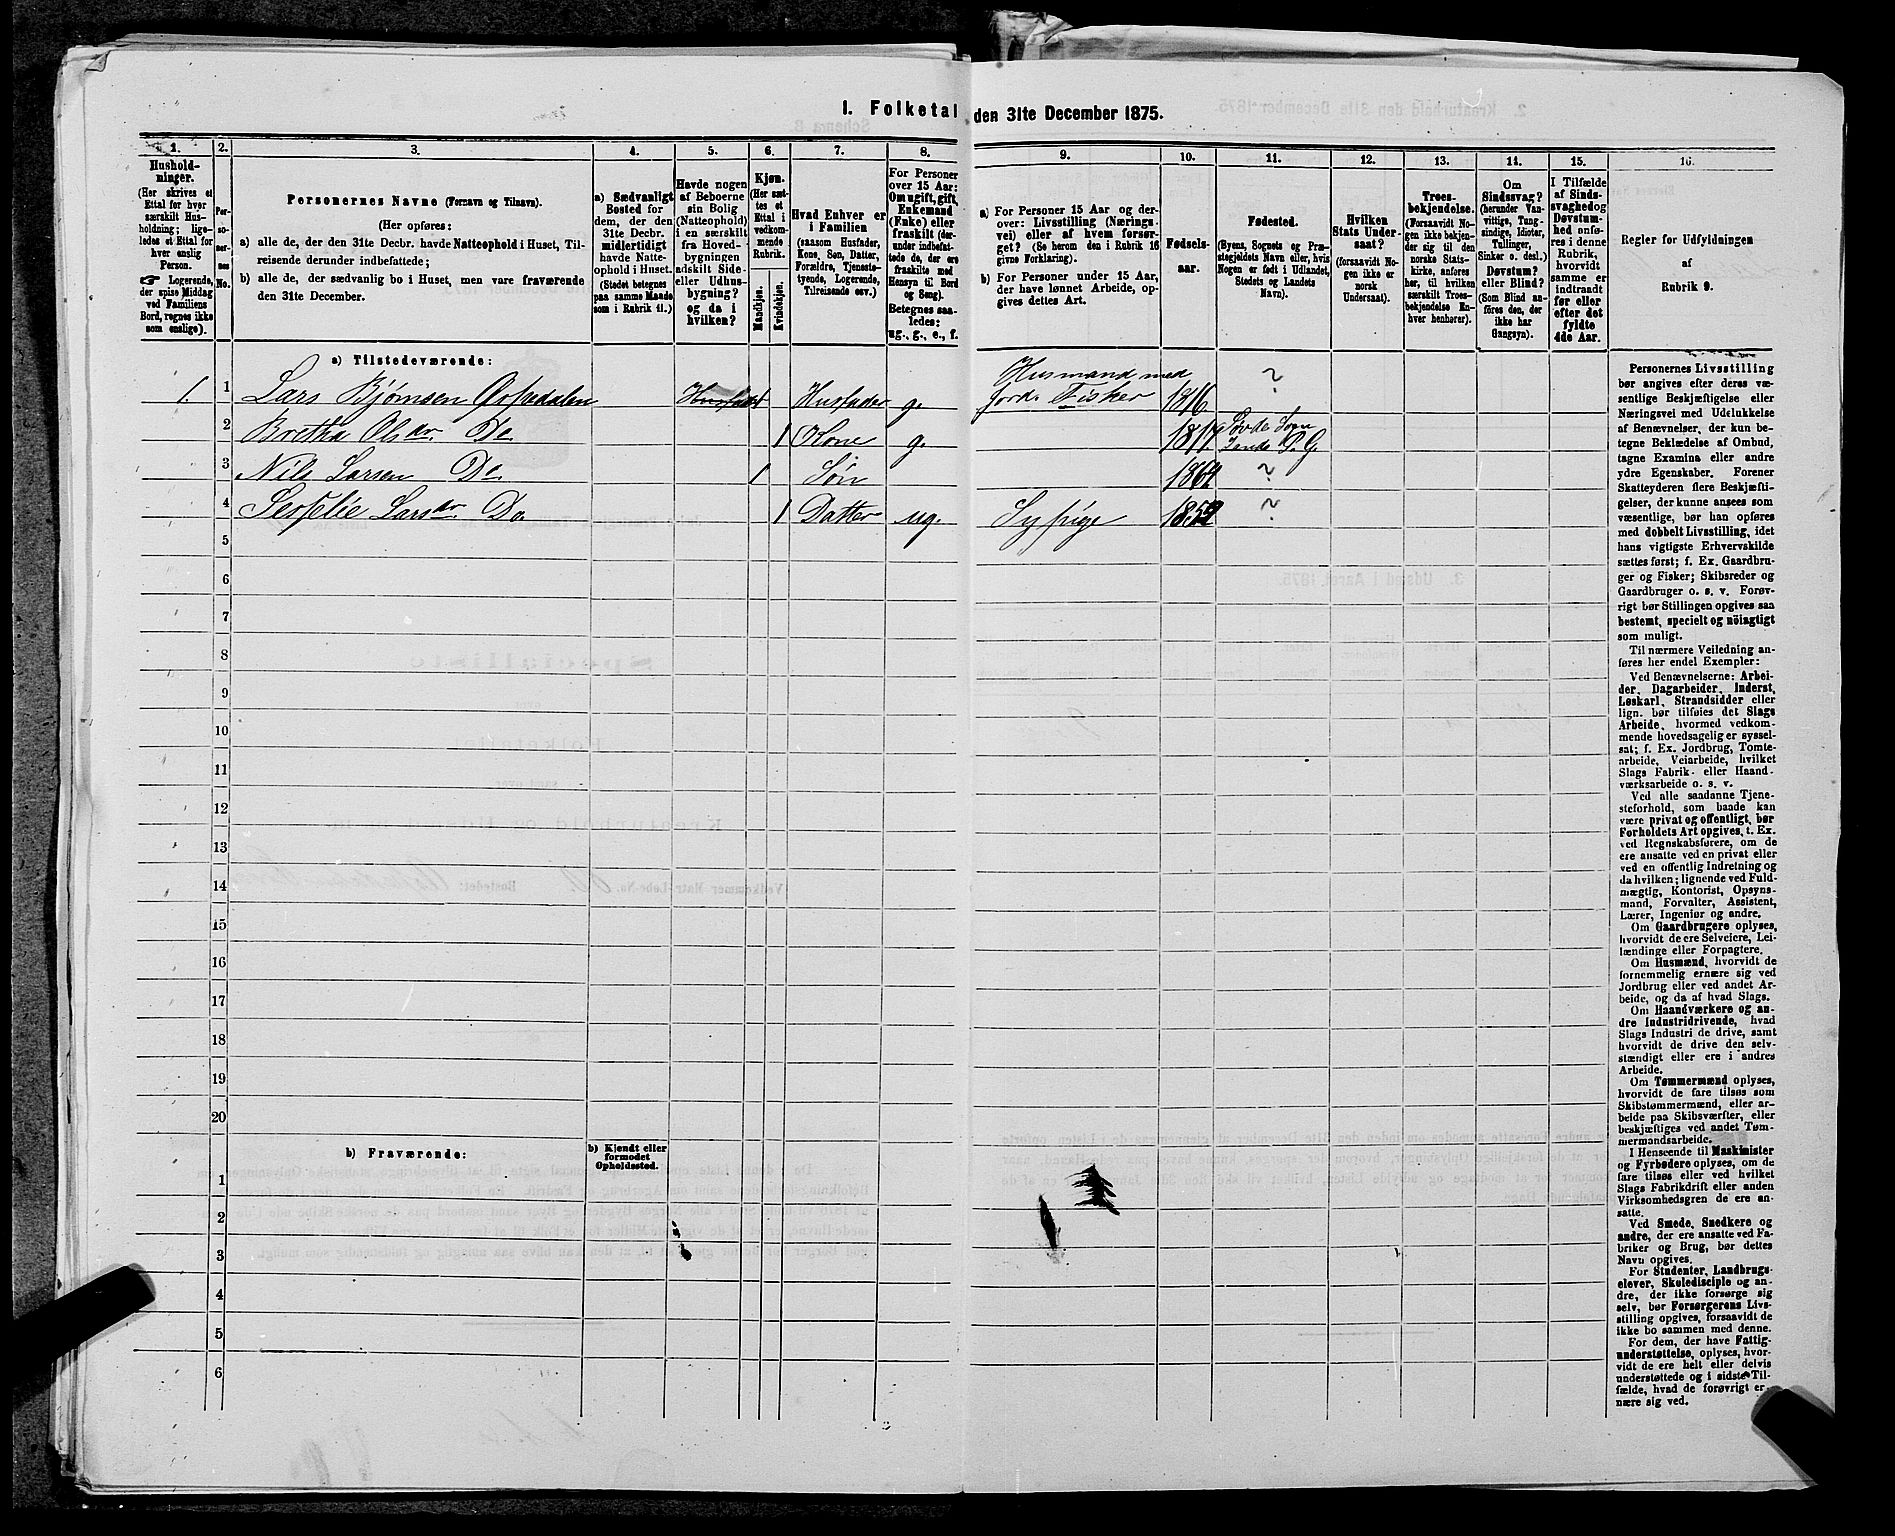 1. Folketal den 31te December 1875.
1. 2. 3. 4. 5. 6. 7. 8. 9. 10. 11. 12. 13. 14. 15. 16.
Hushold-
ninger.
(Her skrives et
Ettal for hver
særskilt Hus-
holdning; lige-
ledes et Ettal for
hver enslig
Person.
Logerende,
der spise Middag
ved Familiens
Bord, regnes ikke
som enslige).
Per-
so-
ner-
nes
No.
Personernes Navne (Fornavn og Tilnavn).
(Her opføres:
a) alle de, der den 31te Decbr. havde Natteophold i Huset, Til-
reisende derunder indbefattede;
b) alle de, der sædvanlig bo i Huset, men vare fraværende
den 31te December.
a) Sædvanligt
Bosted for
dem, der den
31te Decbr.
midlertidigt
havde Natte-
ophold i Huset.
(Stedet betegnes
paa samme Maade
som i Rubrik 11.)
Havde nogen
af Beboerne
sin Bolig
(Natteophold)
i en særskilt
fra Hoved-
bygningen
adskilt Side-
eller Udhus-
bygning?
og da i
hvilken?
Kjøn.
(Her sæt-
tes et
Ettal i
vedkom-
mende
Rubrik.
Mandkjøn.
Kvindekjøn.
Hvad Enhver er
i Familien
(saasom Husfader,
Kone, Søn, Datter,
Forældre, Tjeneste-
tyende, Logerende,
Tilreisende osv.)
For Personer
over 15 Aar:
Om ugift, gift,
Enkemand
(Enke) eller
fraskilt (der-
under indbefat-
tede de, der ere
fraskilte med
Hensyn til Bord
og Seng).
Betegnes saa-
ledes:
ug., g., e., f.
a) For Personer 15 Aar og der-
over: Livsstilling (Nærings-
vei) eller af hvem forsør-
get? (Se herom den i Rubrik 16
givne Forklaring).
b) For Personer under 15 Aar,
der have lønnet Arbeide, op-
gives dettes Art.
Fødsels-
aar.
Fødested.
(Byens, Sognets og Præ-
stegjeldets Navn eller, hvis
Nogen er født i Udlandet,
Stedets og Landets
Navn).
Hvilken
Stats Under-
saat?
(forsaavidt No-
gen ikke er
norsk
Undersaat).
Troes-
bekjendelse.
(Forsaavidt No-
gen ikke bekjen-
der sig til den
norske Stats-
kirke, anføres
her, til hvilken
særskilt Troes-
bekjendelse En-
hver henhører).
Om
Sindssvag?
(herunder Van-
vittige, Tung-
sindige, Idioter,
Tullinger,
Sinker o. desl.)
Døvstum?
eller Blind?
(Som Blind an-
føres den, der
ikke har
Gangsyn).
I Tilfælde
af Sinds-
svaghed og
Døvstum-
hed anfø-
res i denne
Rubrik,
hvorvidt
samme er
indtraadt
før eller
efter det
fyldte
4de Aar.
Regler for Udfyldningen
af
Rubrik 9.
a) Tilstedeværende:
1. 1 Lars Bjørnsen Husfader g. Husmand med Jord. Fisker 1816 ?
2 Bretha Olsdr. Do 1 Kone g. P. G.
3 Nils Larsen Do 1 Søn 1864 ?
4 Larsdr. Do. 1 Datter ug. Sypige ?
5
6
7
8
9
10
11
12
13
14
15
16
17
18
19
20
b) Fraværende:
b) Kjendt eller
formodet
Opholdssted.
1
2
3
4
5
6
Personernes Livsstilling
bør angives efter deres væ-
sentlige Beskjæftigelse eller
Næringsvei med Udelukkelse
af Benævnelser, der kun be-
tegne Beklædelse af Ombud,
tagne Examina eller andre
ydre Egenskaber. Forener
Skatteyderen flere Beskjæfti-
gelser, der kunne ansees som
væsentlige, bør han opføres
med dobbelt Livsstilling, idet
hans vigtigste Erhvervskilde
sættes først; f. Ex. Gaardbru-
ger og Fisker; Skibsreder og
Gaardbruger o. s. v. Forøv-
rigt bør Stillingen opgives saa
bestemt, specielt og nöiagtigt
som muligt.
Til nærmere Veiledning an-
føres her endel Exempler:
Ved Benævnelserne: Arbei-
der, Dagarbeider, Inderst,
Løskarl, Strandsidder eller
lign. bør tilføies det Slags
Arbeide, hvormed vedkom-
mende hovedsagelig er syssel-
sat; f. Ex. Jordbrug, Tomte-
arbeide, Veiarbeide, hvilket
Slags Fabrik- eller Haand-
værksarbeide o. s. v.
Ved alle saadanne Tjene-
steforhold, som baade kan
være privat og offentligt, bør
Forholdets Art opgives, t. Ex.
ved Regnskabsførere, om de
ere ansatte ved en privat eller
ved en offentlig Indretning og
da hvilken; lignende ved Fuld-
mægtig, Kontorist, Opsyns-
mand, Forvalter, Assistent,
Lærer, Ingeniør og andre.
Om Gaardbrugere oplyses,
hvorvidt de ere Selveiere, Lei-
lændinge eller Forpagtere.
Om Husmænd, hvorvidt de
fornemmelig ernære sig ved
Jordbrug eller ved andet Ar-
beide, og da af hvad Slags.
Om Haandværkere og an-
dre Industridrivende, hvad
Slags Industri de drive, samt
hvorvidt de drive den selv-
stændigt eller ere i andres
Arbeide.
Om Tømmermænd oplyses,
hvorvidt de fare tilsøs som
Skibstømmermænd, eller ar-
beide paa Skibsværfter, eller
beskjæftiges ved andet Tøm-
mermandsarbeide.
I Henseende til Maskinister
og Fyrbødere oplyses, om de
fare tilsøs eller ved hvilket
Slags Fabrikdrift eller anden
Virksomhedsgren de ere an-
satte.
Ved Smede, Snedkere og
andre, der ere ansatte ved Fa-
briker og Brug, bør dettes
Navn opgives.
For Studenter, Landbrugs-
elever, Skoledisciple og an-
dre, der ikke forsørge sig
selv, bør Forsørgerens Livs-
stilling opgives, forsaavidt de
ikke bo sammen med denne.
For dem, der have Fattig-
understøttelse, oplyses, hvor-
vidt de ere helt eller delvis
understøttede og i sidste Til-
fælde, hvad de forøvrigt er-
nære sig ved.